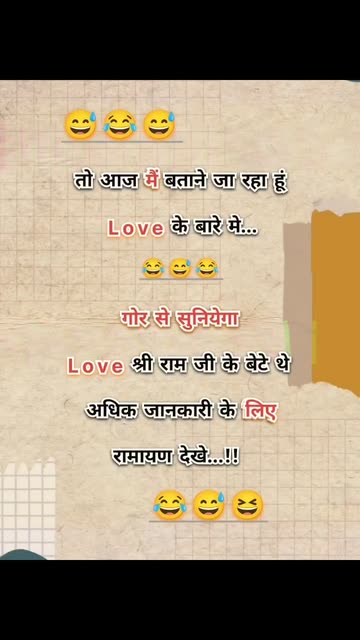 😅😂😅
तो आज मैं बताने जा रहा हूं
Love के बारे मे...
😂😅😂
गोर से सुनियेगा
Love श्री राम जी के बेटे थे
अधिक जानकारी के लिए
रामायण देखे...!!
😂😅😆